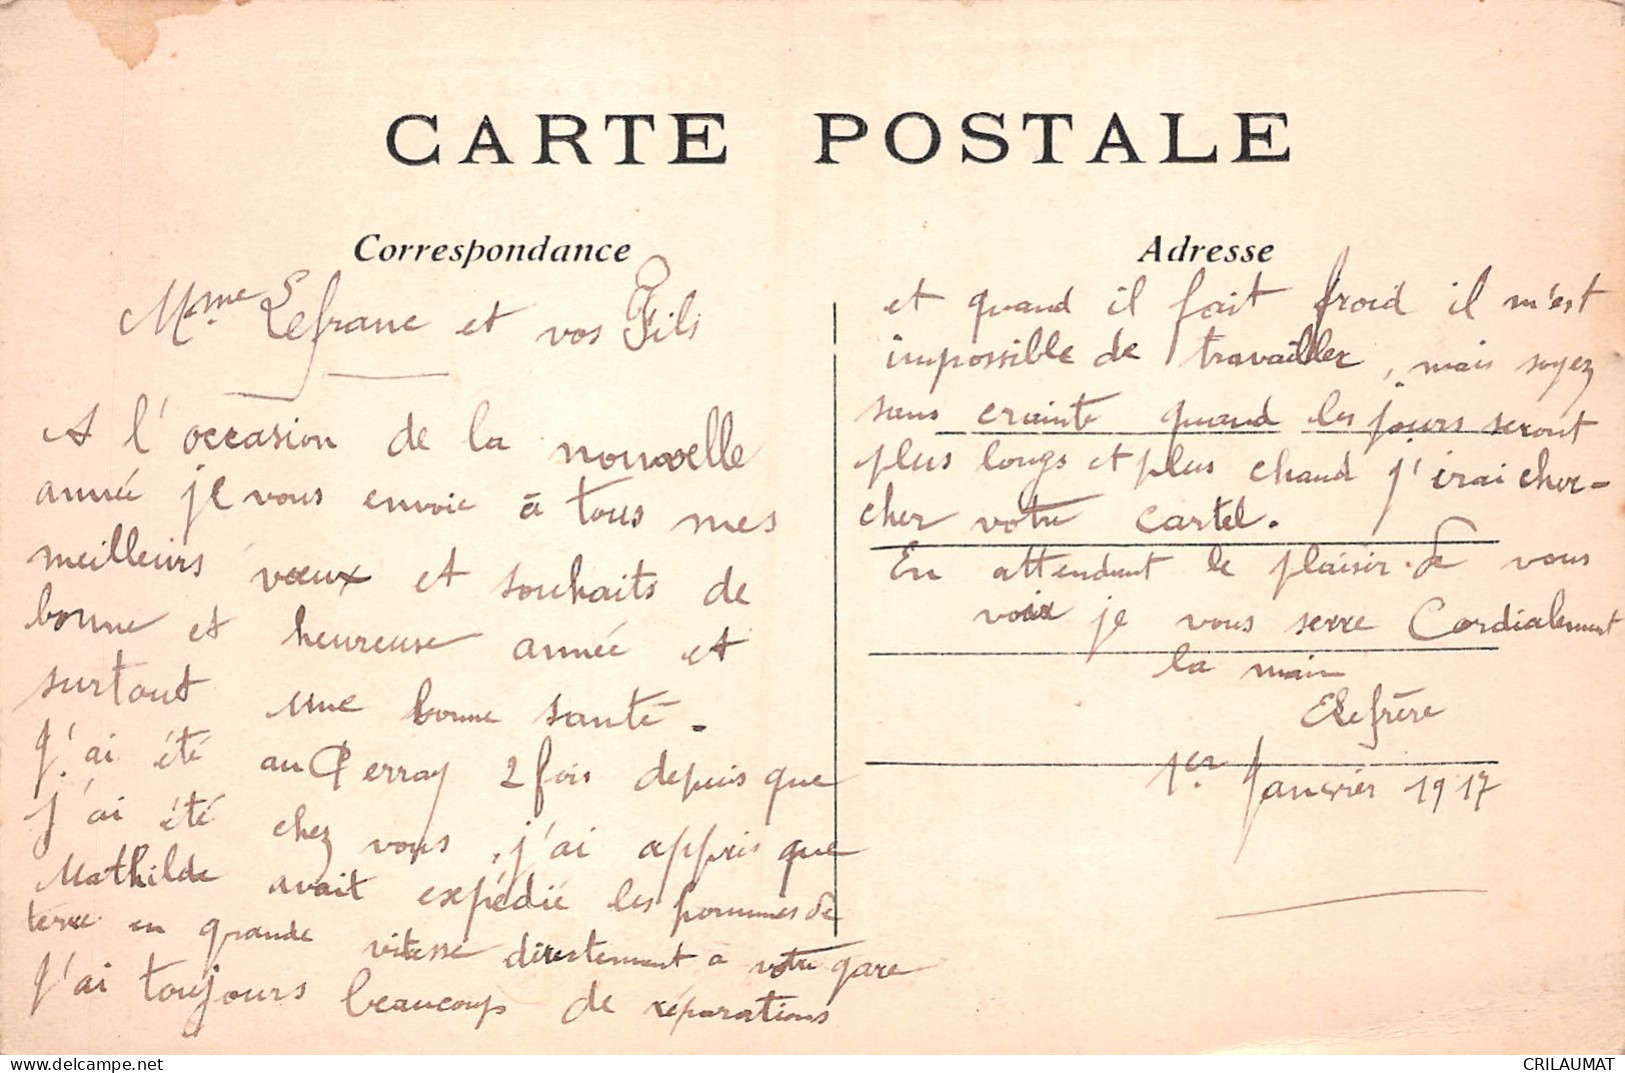 CARTE POSTALE
Correspondance
Mme Lefranc et vos Fils
A l'occasion de la nouvelle
année je vous envoie à tous mes
meilleurs vœux et souhaits de
bonne et heureuse année et
surtout une bonne santé.
J'ai été au Perray 2 fois depuis que
j'ai été chez vous, j'ai appris que
Mathilde avait expédié les pommes de
terre en grande vitesse directement a votre gare
J'ai toujours beaucoup de réparations
Adresse
et quand il fait froid il m'est
impossible de travailler, mais soyez
sans crainte quand les jours seront
plus longs et plus chaud j'irai cher-
cher votre cartel.
En attendant le plaisir de vous
voir je vous serre Cordialement
la main
1er Janvier 1917
delcampe.net
CRILAUMAT